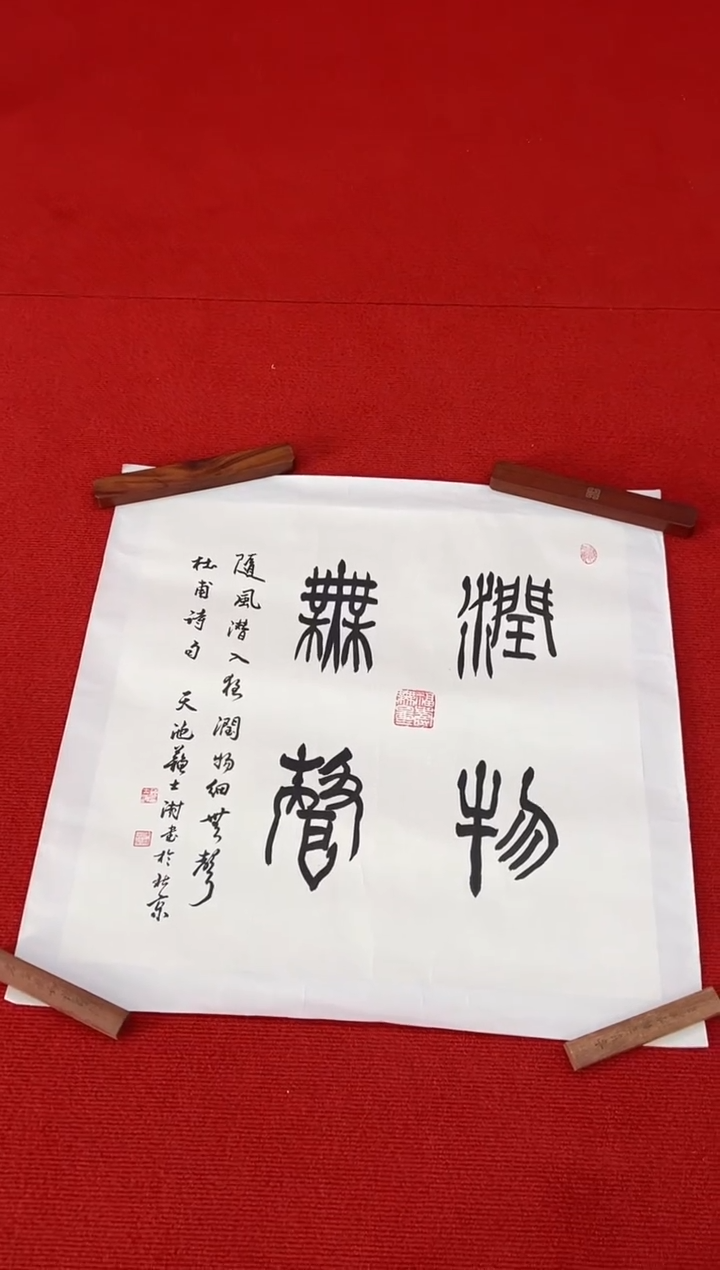 潤物
無聲
隨風潛入夜潤物細無聲
杜甫詩句 天池蘇士澍書於北京